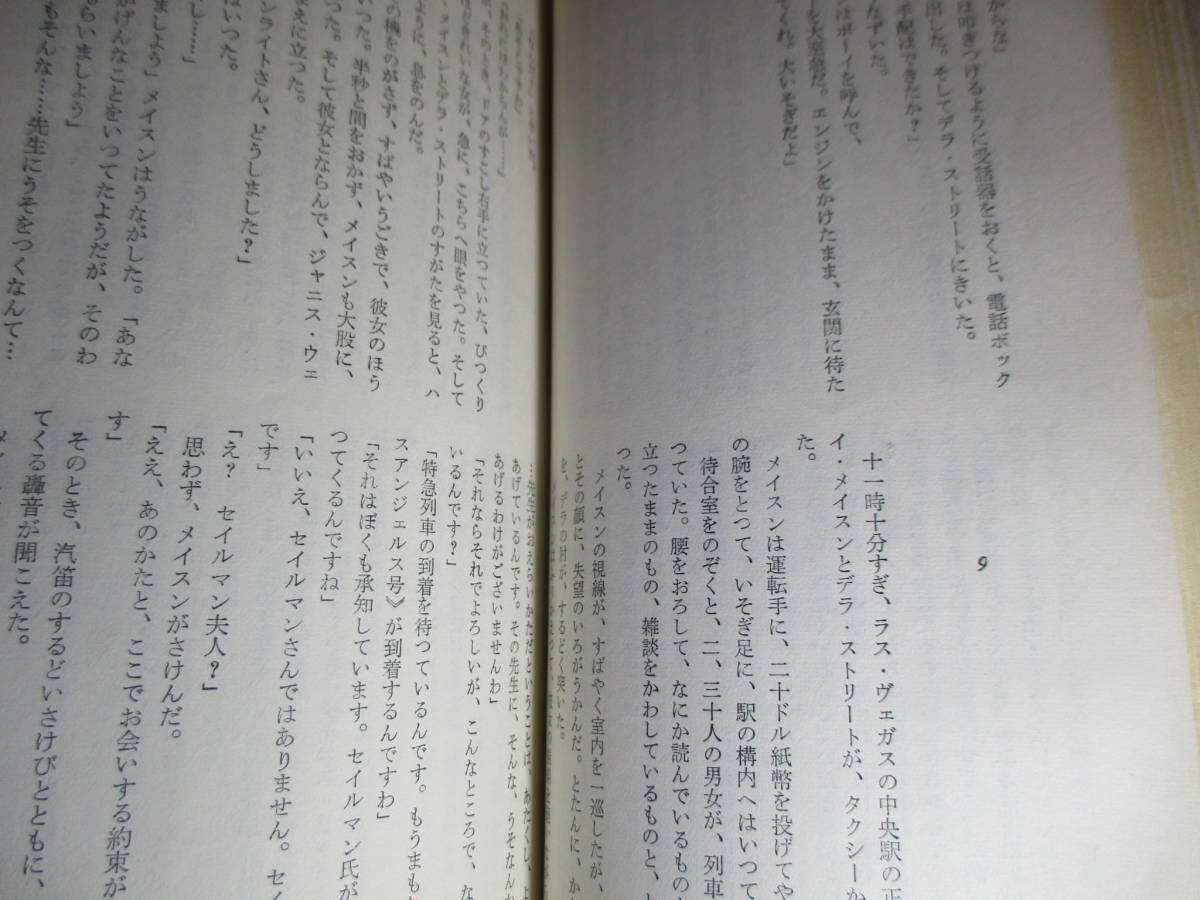 からな」
は叩きつけるように受話器をおくと、電話ボック
出した。そしてデラ・ストリートにきいた。
手配はできたか？」
なずいた。
はボーイを呼んで、
ーを大至急だ。エンジンをかけたまま、玄関に待た
てくれ。大いそぎだよ」
9
十一時十分すぎ、ラス・ヴェガスの中央駅の正
イ・メイスンとデラ・ストリートが、タクシーか
た。
メイスンは運転手に、二十ドル紙幣を投げてや
の腕をとつて、いそぎ足に、駅の構内へはいつて
待合室をのぞくと、二、三十人の男女が、列車
つていた。腰をおろして、なにか読んでいるもの
立つたままのもの、雑談をかわしているものと、
つた。
メイスンの視線が、すばやく室内を一巡したが、
とその顔に、失望のいろがうかんだ。とたんに、か
を、デラの肘が、するどく突いた。
そのとき、ドアのすこし右手に立つていた、びつくり
きれいな女が、急に、こちらへ眼をやつた。そして
メイスンとデラ・ストリートのすがたを見ると、ハ
ように、急をのんだ。
の機をのがさず、すばやいうごきで、彼女のほう
いつた。半秒と間をおかず、メイスンも大股に、
つた。そして彼女とならんで、ジャニス・ウェ
まえに立つた。
ンライトさん、どうしました？」
はいつた。
し……」
ましよう」メイスンはうながした。「あな
がげんなことをいつてたようだが、そのわ
らいましよう」
もそんな……先生にうそをつくなんて…
…先生がおえらいかただということは、あたくし、
あげているんです。その先生に、そんな、うそなんか
あげるわけがございませんわ」
「それならそれでよろしいが、こんなところで、な
いるんです？」
「特急列車の到着を待つているんです。もうまも
スアンジェルス号》が到着するんですわ」
「それはぼくも承知しています。セイルマン氏が
つてくるんですね」
「いいえ、セイルマンさんではありません。セイ
です」
「え？　セイルマン夫人？」
思わず、メイスンがさけんだ。
「ええ、あのかたと、ここでお会いする約束が
す」
そのとき、汽笛のするどいさけびとともに、
てくる轟音が聞こえた。